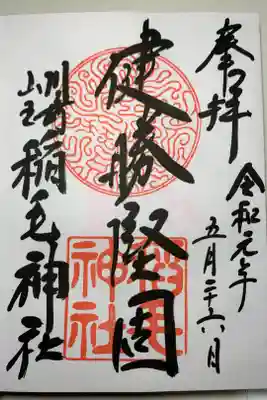 奉拝
令和元年
五月二十六日
健勝堅固
稲毛
神社
川崎
山王
稲毛神社